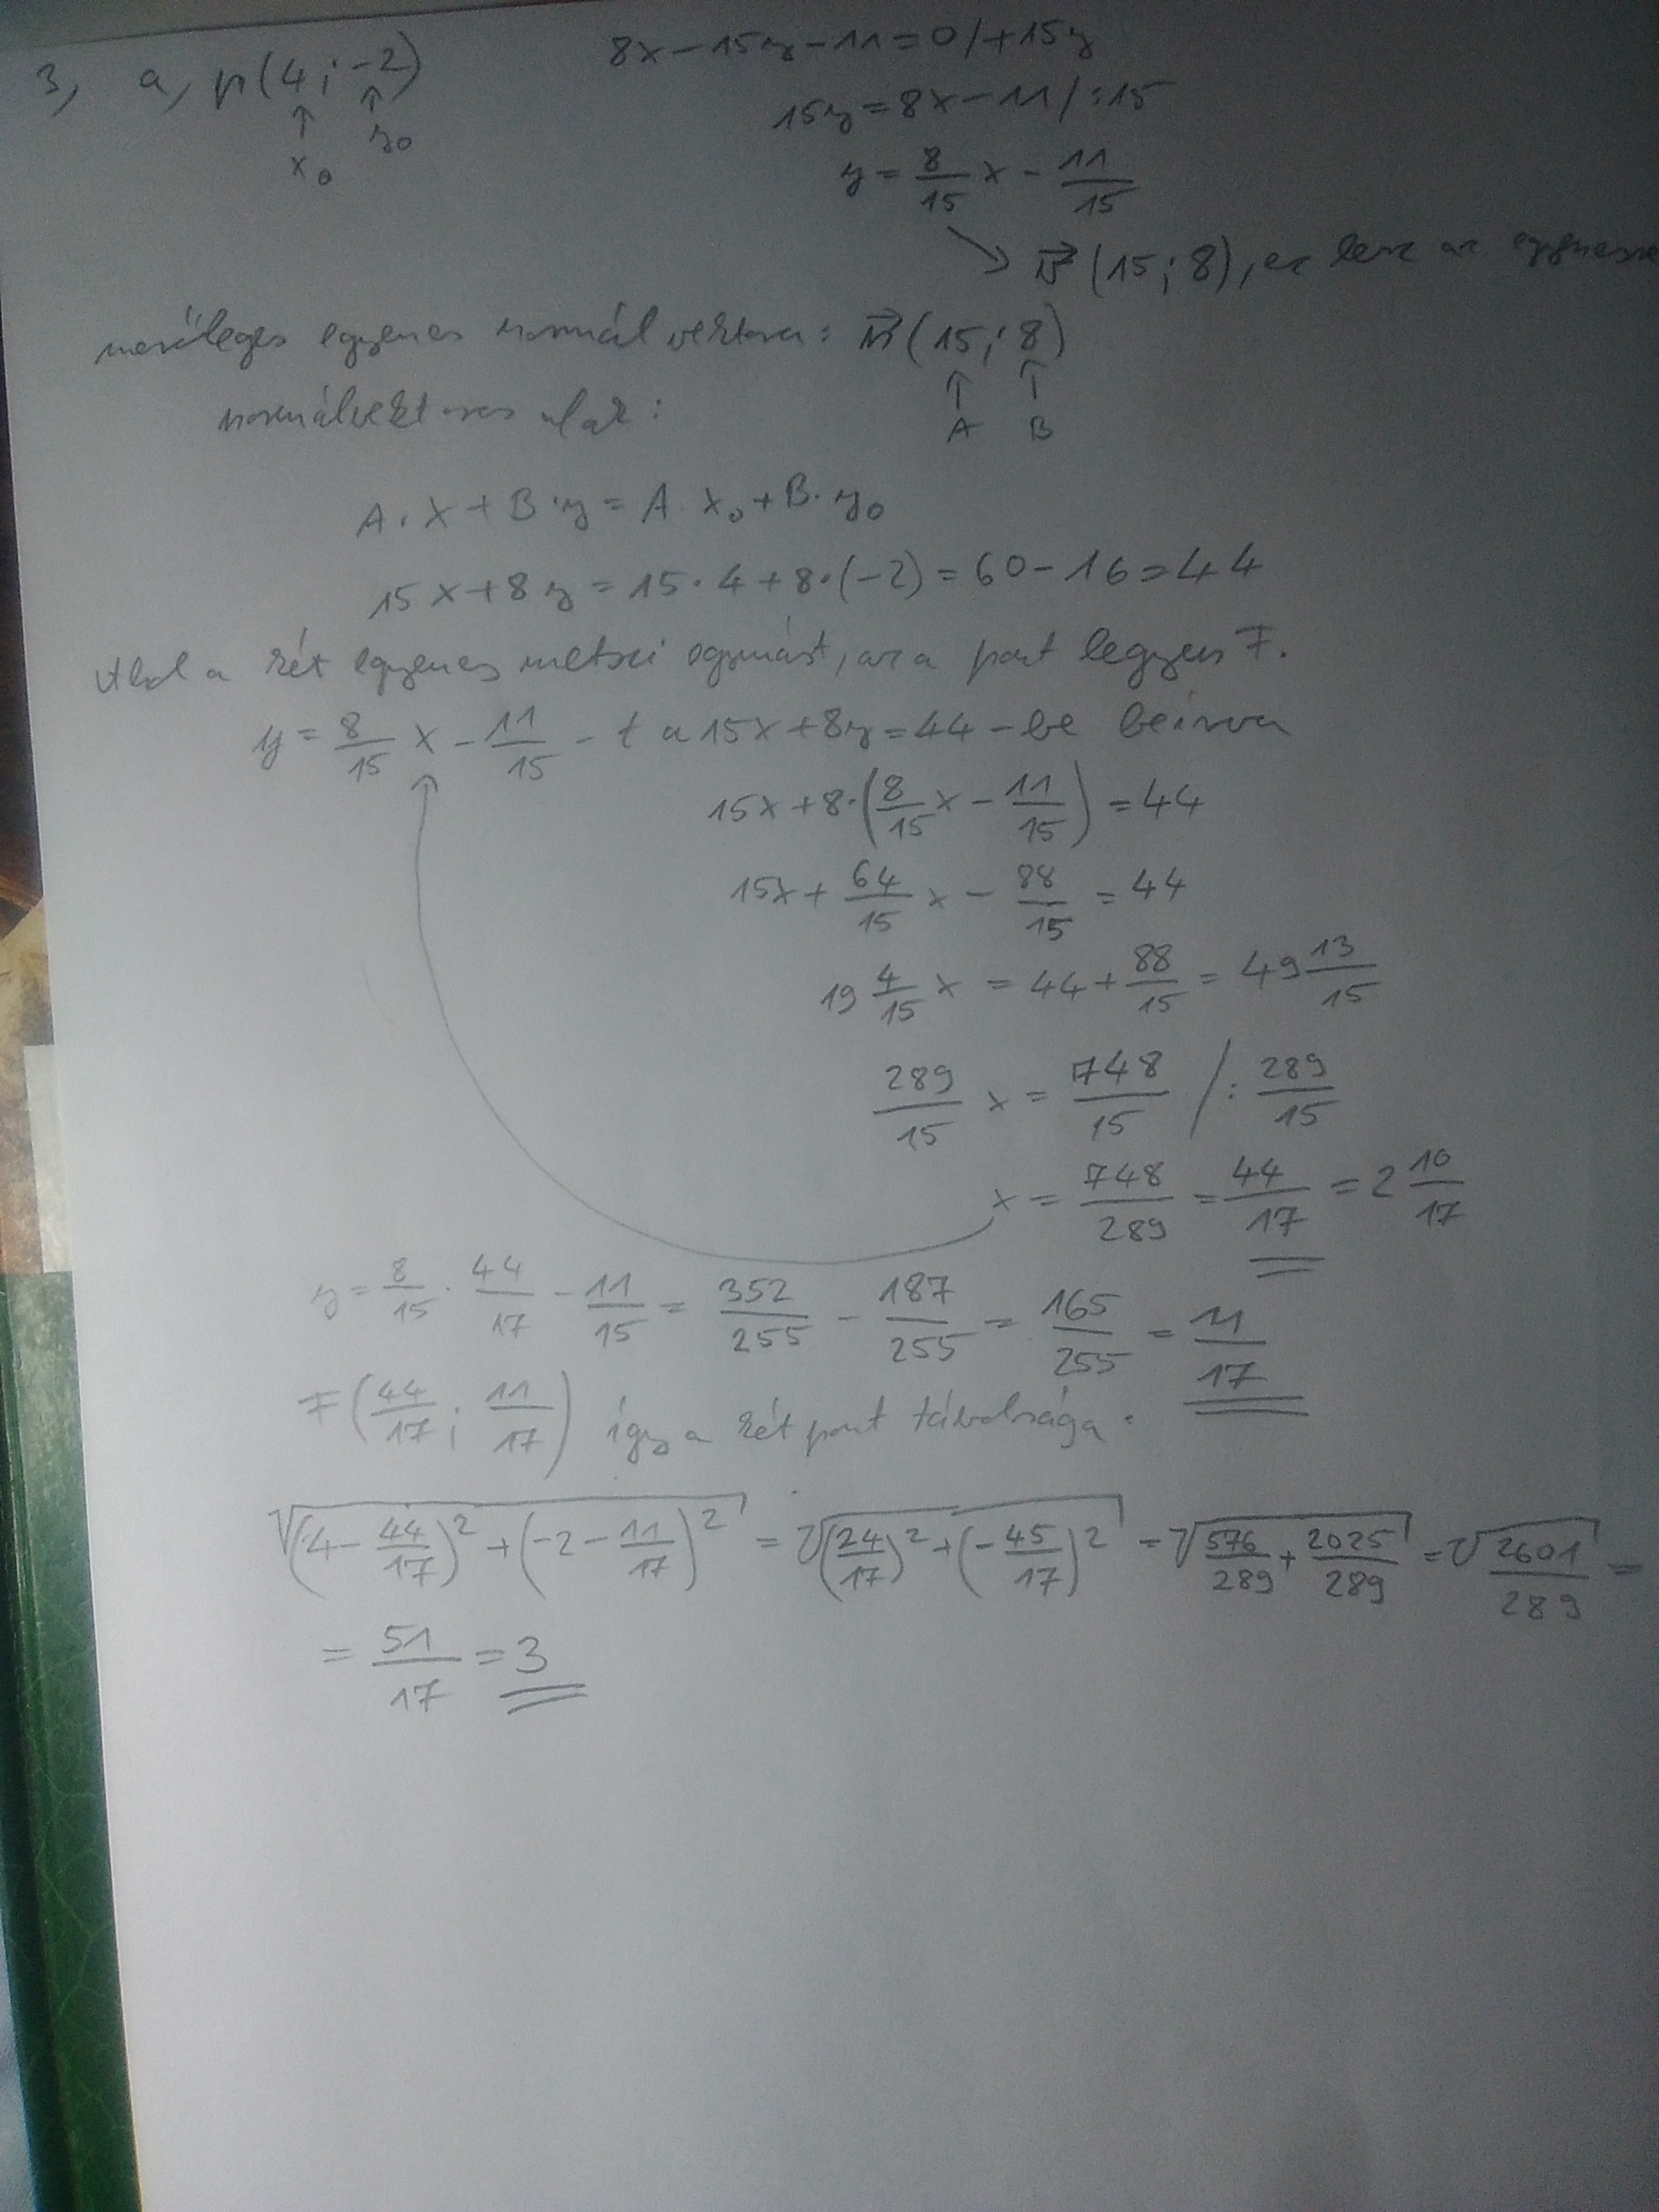 3, a, p(4; -2)
↑ ↑
x₀ y₀
8x - 15y - 11 = 0 / +15y
15y = 8x - 11 / :15
y = 8/15 x - 11/15
↘ v⃗ (15; 8), ez lesz az egyenesre
merőleges egyenes normálvektora: n⃗ (15; 8)
↑ ↑
A B
normálvektoros alak:
A·x + B·y = A·x₀ + B·y₀
15x + 8y = 15·4 + 8·(-2) = 60 - 16 = 44
Ahol a két egyenes metszi egymást, az a pont legyen F.
y = 8/15 x - 11/15 - t a 15x + 8y = 44 - be beírva
15x + 8·(8/15 x - 11/15) = 44
15x + 64/15 x - 88/15 = 44
19 4/15 x = 44 + 88/15 = 49 13/15
289/15 x = 748/15 / : 289/15
x = 748/289 = 44/17 = 2 10/17
y = 8/15 · 44/17 - 11/15 = 352/255 - 187/255 = 165/255 = 11/17
F (44/17; 11/17) így a két pont távolsága:
√((4 - 44/17)² + (-2 - 11/17)²) = √((24/17)² + (-45/17)²) = √(576/289 + 2025/289) = √(2601/289) =
= 51/17 = 3